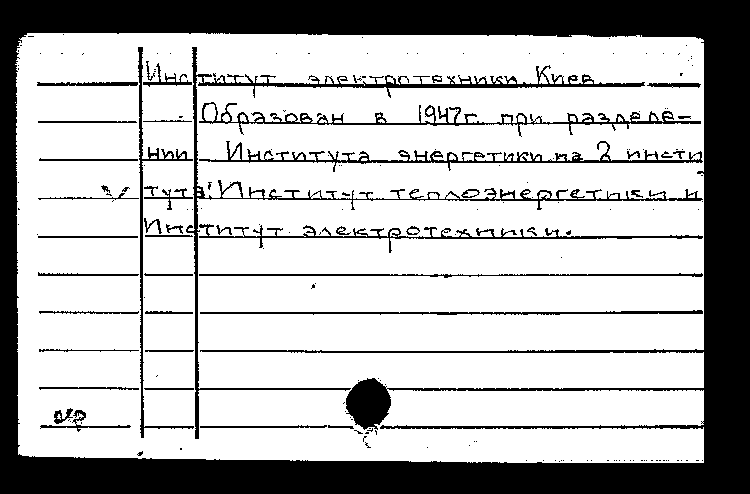 Институт электротехники. Киев.
Образован в 1947г. при разделе-
нии Института энергетики на 2 инсти
тута: Институт теплоэнергетики и
Институт электротехники.